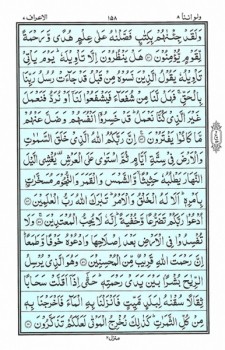 ولو اننا ٨ ١٥٨ الاعراف ٧
وَلَقَدْ جِئْنٰهُمْ بِكِتٰبٍ فَصَّلْنٰهُ عَلٰى عِلْمٍ هُدًى وَّ رَحْمَةً
لِّقَوْمٍ يُّؤْمِنُوْنَ ۝ هَلْ يَنْظُرُوْنَ اِلَّا تَاْوِيْلَهٗ ؕ يَوْمَ يَاْتِيْ
تَاْوِيْلُهٗ يَقُوْلُ الَّذِيْنَ نَسُوْهُ مِنْ قَبْلُ قَدْ جَآءَتْ رُسُلُ رَبِّنَا
بِالْحَقِّ ۚ فَهَلْ لَّنَا مِنْ شُفَعَآءَ فَيَشْفَعُوْا لَنَاۤ اَوْ نُرَدُّ فَنَعْمَلَ
غَيْرَ الَّذِيْ كُنَّا نَعْمَلُ ؕ قَدْ خَسِرُوْۤا اَنْفُسَهُمْ وَضَلَّ عَنْهُمْ
مَّا كَانُوْا يَفْتَرُوْنَ ۝ اِنَّ رَبَّكُمُ اللّٰهُ الَّذِيْ خَلَقَ السَّمٰوٰتِ
وَالْاَرْضَ فِيْ سِتَّةِ اَيَّامٍ ثُمَّ اسْتَوٰى عَلَى الْعَرْشِ يُغْشِى الَّيْلَ
النَّهَارَ يَطْلُبُهٗ حَثِيْثًا ۙ وَّالشَّمْسَ وَالْقَمَرَ وَالنُّجُوْمَ مُسَخَّرٰتٍۭ
بِاَمْرِهٖ ؕ اَلَا لَهُ الْخَلْقُ وَالْاَمْرُ ؕ تَبٰرَكَ اللّٰهُ رَبُّ الْعٰلَمِيْنَ ۝
اُدْعُوْا رَبَّكُمْ تَضَرُّعًا وَّخُفْيَةً ؕ اِنَّهٗ لَا يُحِبُّ الْمُعْتَدِيْنَ ۝ وَلَا
تُفْسِدُوْا فِى الْاَرْضِ بَعْدَ اِصْلَاحِهَا وَادْعُوْهُ خَوْفًا وَّطَمَعًا ؕ
اِنَّ رَحْمَتَ اللّٰهِ قَرِيْبٌ مِّنَ الْمُحْسِنِيْنَ ۝ وَهُوَ الَّذِيْ يُرْسِلُ
الرِّيٰحَ بُشْرًۢا بَيْنَ يَدَيْ رَحْمَتِهٖ ؕ حَتّٰۤى اِذَاۤ اَقَلَّتْ سَحَابًا
ثِقَالًا سُقْنٰهُ لِبَلَدٍ مَّيِّتٍ فَاَنْزَلْنَا بِهِ الْمَآءَ فَاَخْرَجْنَا بِهٖ
مِنْ كُلِّ الثَّمَرٰتِ ؕ كَذٰلِكَ نُخْرِجُ الْمَوْتٰى لَعَلَّكُمْ تَذَكَّرُوْنَ ۝
منزل ٢